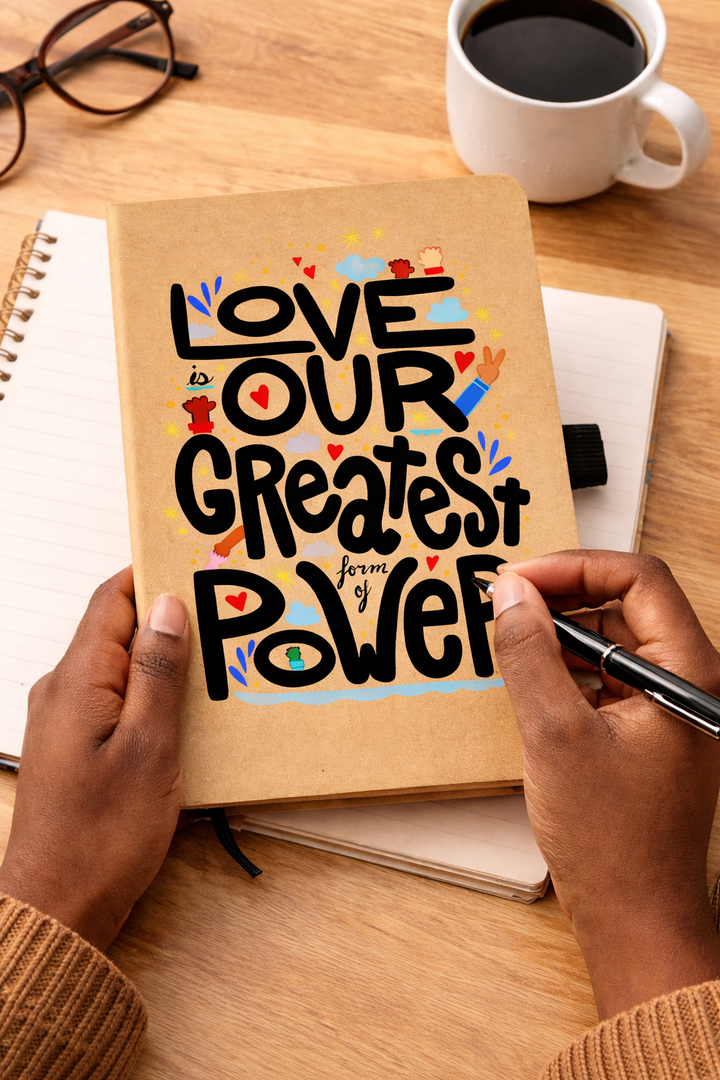 LOVE
is OUR
GReatest
form of
PoWeR